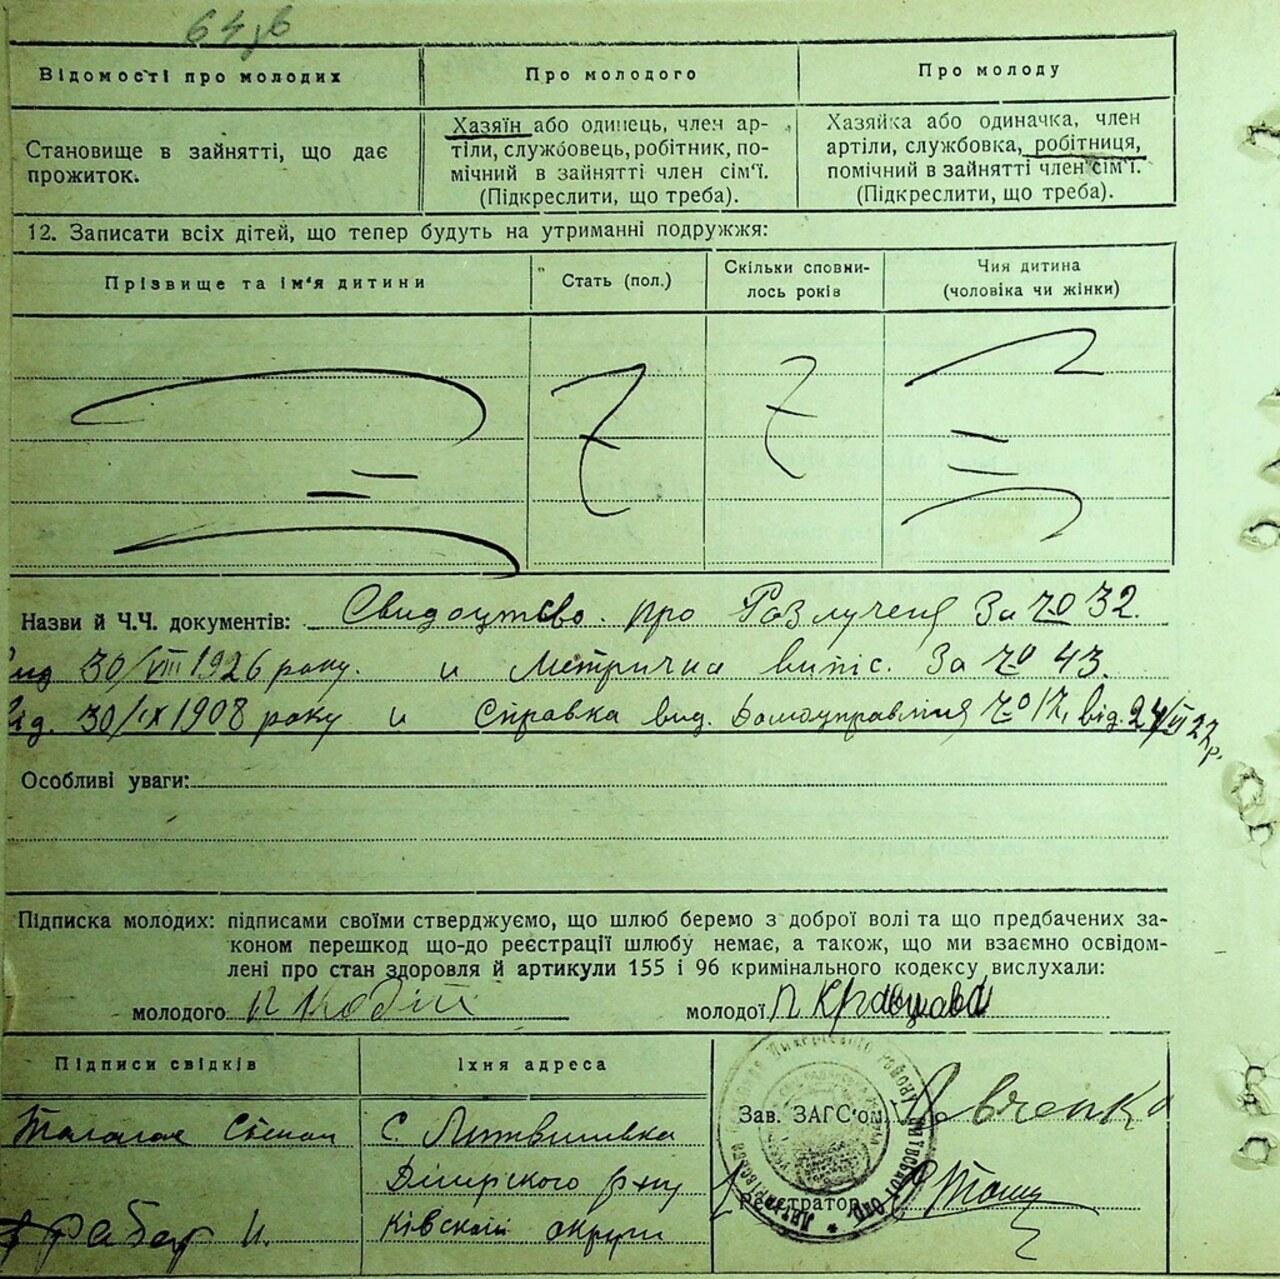 Відомості про молодих
Про молодого
Про молоду
Становище в зайнятті, що дає
прожиток.
Хазяїн або одинець, член ар-
тіли, службовець, робітник, по-
мічний в зайнятті член сім'ї.
(Підкреслити, що треба).
Хазяйка або одиначка, член
артіли, службовка, робітниця,
помічний в зайнятті член сім'ї.
(Підкреслити, що треба).
12. Записати всіх дітей, що тепер будуть на утриманні подружжя:
Прізвище та ім'я дитини
Стать (пол.)
Скільки сповни-
лось років
Чия дитина
(чоловіка чи жінки)
Назви й Ч.Ч. документів: Свидоцтво про Розлученя За № 32.
вид 30/VIII 1926 року. и Метрична випіс. За № 43.
Від. 30/IX 1908 року и Справка вид. Домоуправління № 17, від. 24/VI 27 р.
Особливі уваги:
Підписка молодих: підписами своїми стверджуємо, що шлюб беремо з доброї волі та що предбачених за-
коном перешкод що-до реєстрації шлюбу немає, а також, що ми взаємно освідом-
лені про стан здоровля й артикули 155 і 96 кримінального кодексу вислухали:
молодого
молодої П Кравцова
Підписи свідків
Їхня адреса
Зав. ЗАГС'ом
С. Литвинівка
Димерского р-ну
Київскої округи
Реєстратор